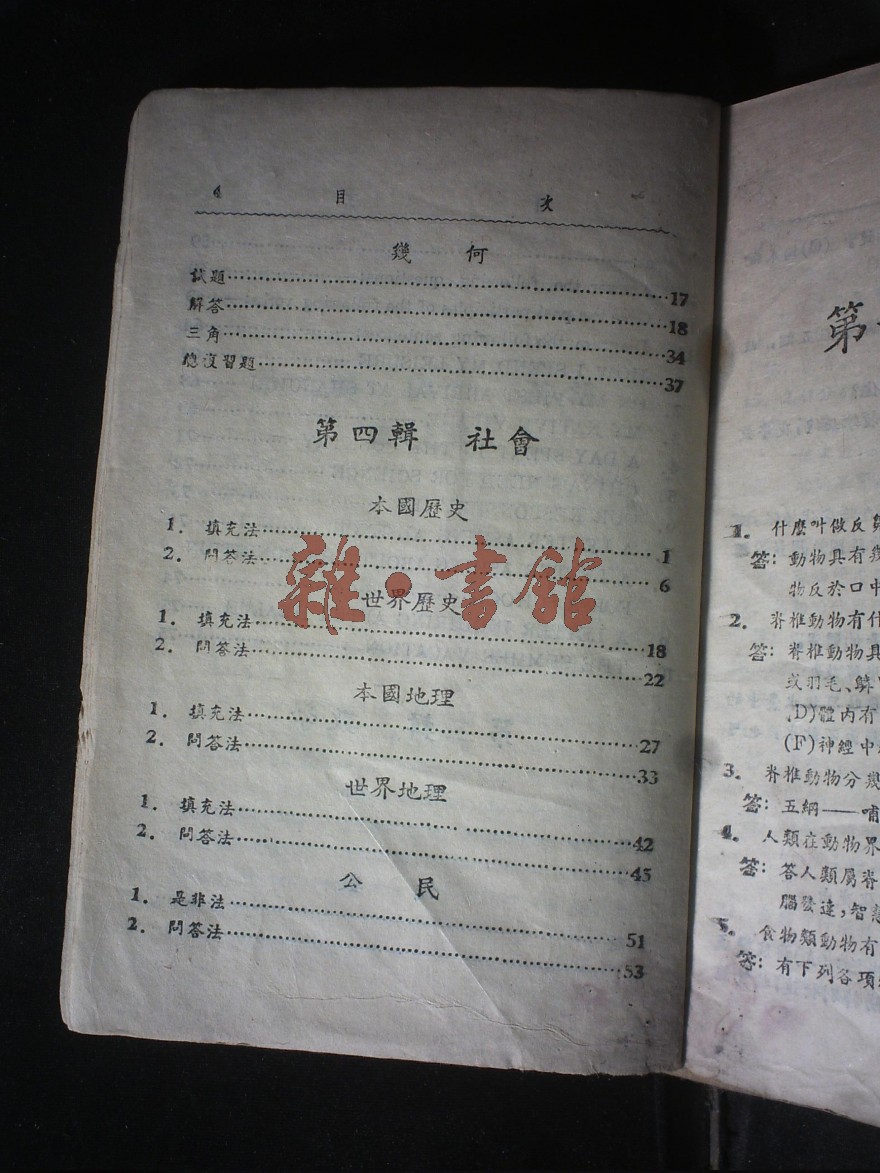 4 目 次
幾 何
試題……17
解答……18
三角……34
總復習題……37
第四輯 社會
本國歷史
1. 填充法……1
2. 問答法……6
世界歷史
1. 填充法……18
2. 問答法……22
本國地理
1. 填充法……27
2. 問答法……33
世界地理
1. 填充法……42
2. 問答法……45
公 民
1. 是非法……51
2. 問答法……53
雜·書館
第
1. 什麼叫做反芻
答: 動物具有幾
物反於口中
2. 脊椎動物有什
答: 脊椎動物具
或羽毛、鱗
(D)體內有
(F)神經中
3. 脊椎動物分幾
答: 五綱——哺
4. 人類在動物界
答: 答人類屬脊
腦發達,智慧
5. 食物類動物有
答: 有下列各項